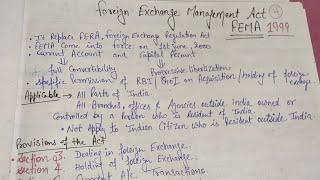 Foreign Exchange Management Act
FEMA 1999
• It Replace FERA, foreign Exchange Regulation Act
• FEMA Come into force on 1st June, 2000
• Current Account and Capital Account
↓ ↓
full Convertibility Progressive liberlization
• specific Permission of RBI/ GoI on Acquisition/ Holding of foreign exchange
Applicable → All Parts of India.
All Branches, offices & Agencies outside India owned or
Controlled by a Person who is Resident of India
• Not Apply to Indian Citizen who is Resident outside India
Provisions of the Act
• Section 03. Dealing in foreign Exchange.
• Section 4. Holding of foreign Exchange.
Current A/c Transactions.